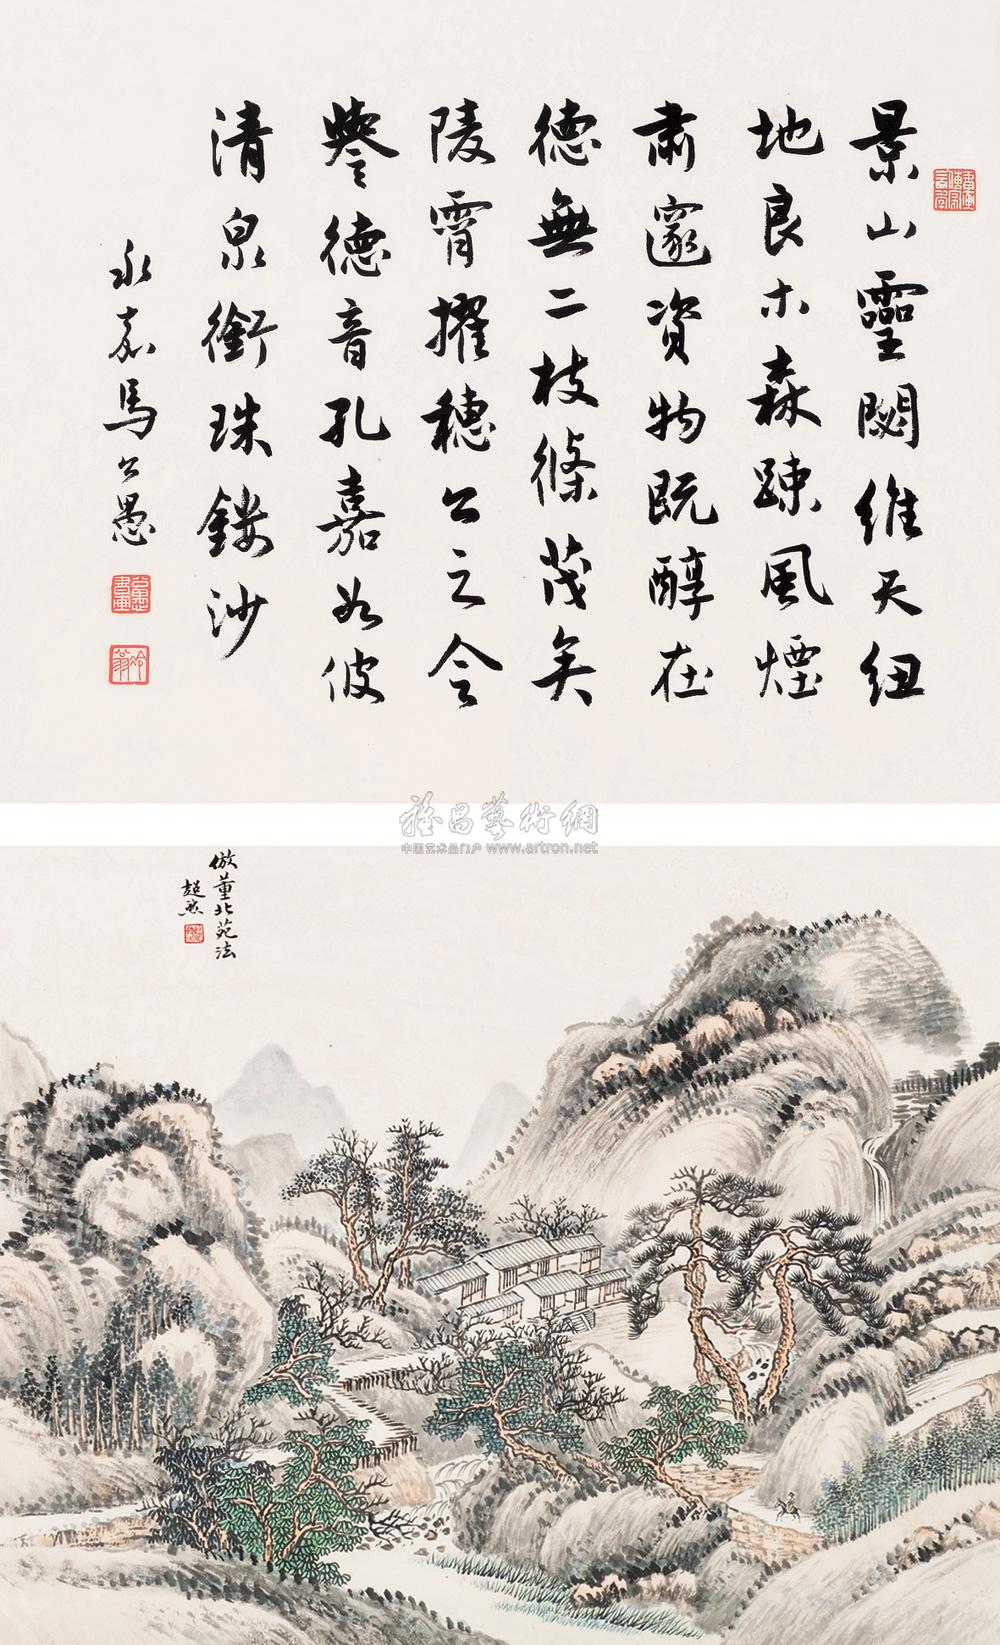 景山靈閟維天紐
地良木森踈風煙
肅邃資物既醇在
德無二枝條茂矣
陵霄擢穗公之令
譽德音孔嘉如彼
清泉銜珠鏤沙
永嘉馬公愚
公愚書畫
冷翁
雅昌藝術網
中国艺术品门户 www.artron.net
倣董北苑法
超然